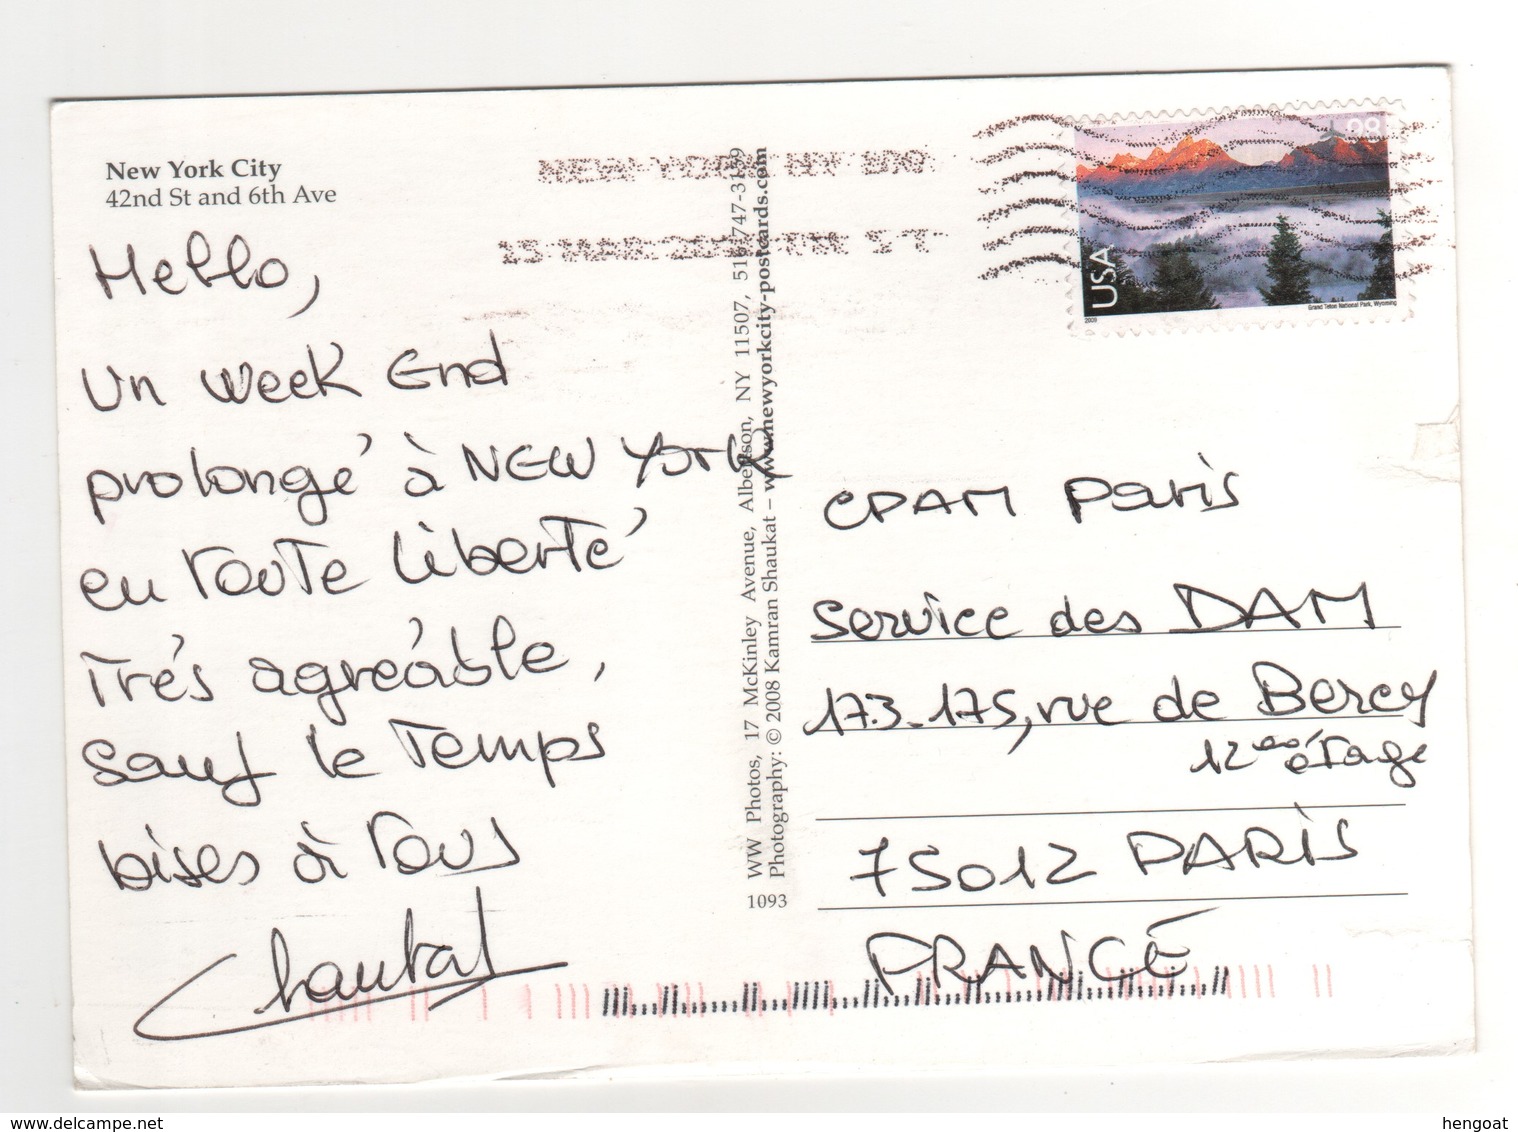 New York City
42nd St and 6th Ave
Hello,
Un week End
prolongé à NEW York
en toute liberté
très agréable,
sauf le temps
bises à tous
Chantal
WW Photos, 17 McKinley Avenue, Albertson, NY 11507, 516 747-3159
Photography: © 2008 Kamran Shaukat – www.newyorkcity-postcards.com
1093
NEW YORK NY 100
13 MAR
98
USA
2009
Grand Teton National Park, Wyoming
CPAM Paris
Service des DAM
173-175, rue de Bercy
étage
75012 PARIS
FRANCE
www.delcampe.net
hengoat